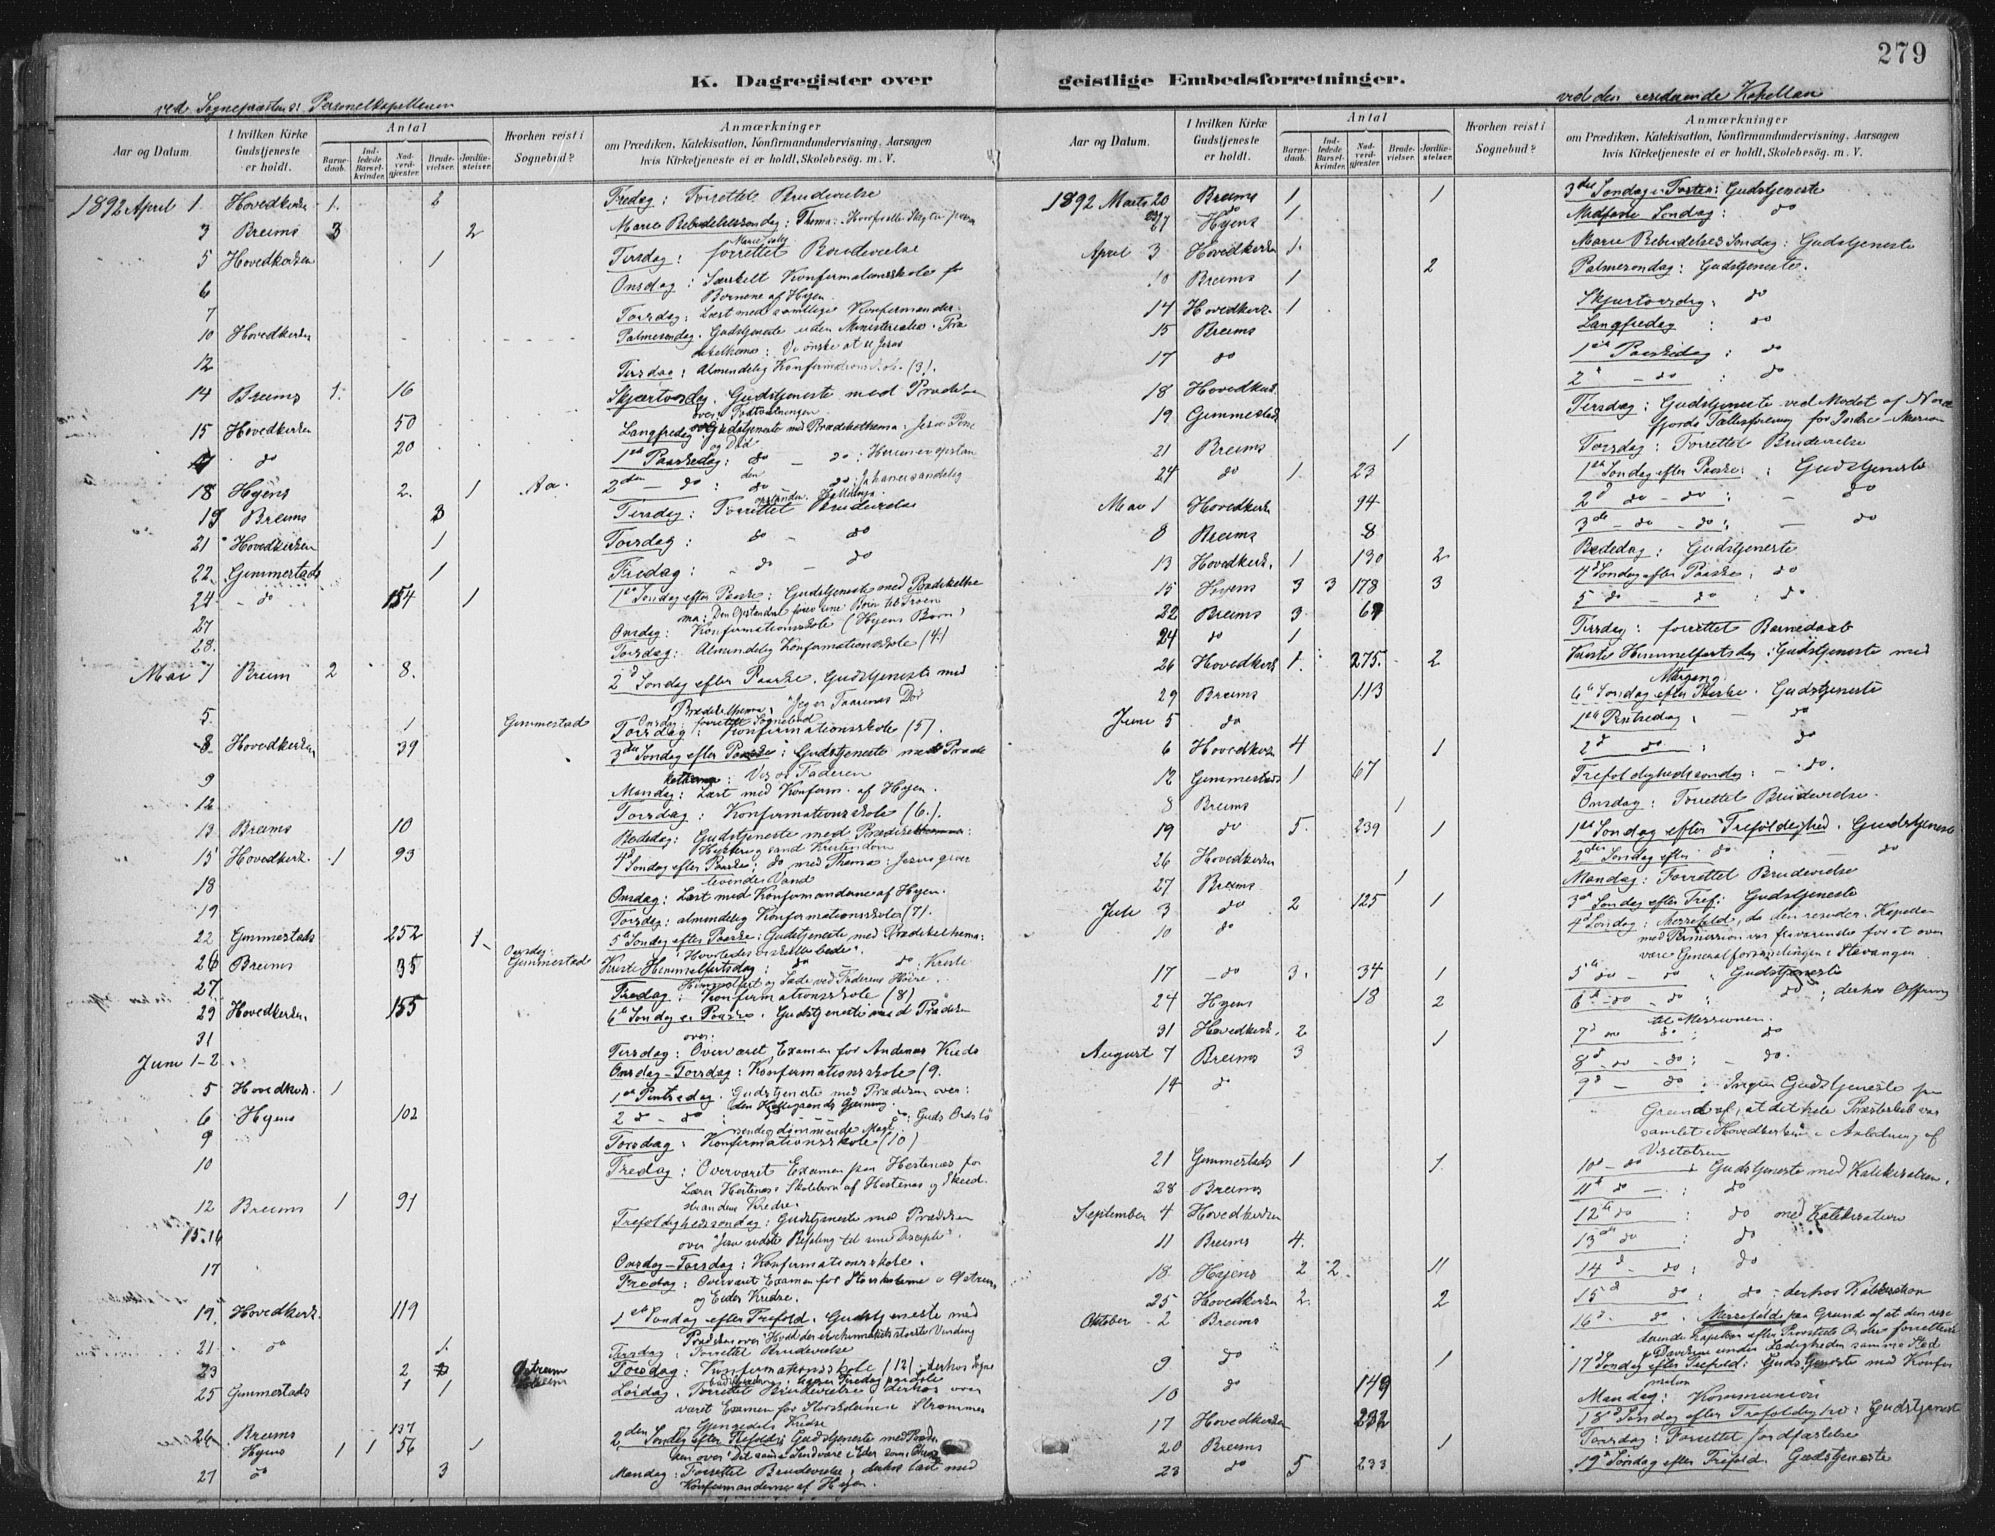 279
K. Dagregister over
geistlige Embedsforretninger.
ved Personelkapellanen
ved den residerende Kapellan
Aar og Datum.
I hvilken Kirke Gudstjeneste er holdt.
Antal
Barnedaab.
Indledede Barselkvinder.
Nadverdgjester
Brudevielser.
Jordfæstelser.
Hvorhen reist i Sognebud?
Anmærkninger
om Prædiken, Katekisation, Konfirmandundervisning, Aarsagen
hvis Kirketjeneste ei er holdt, Skolebesøg m. V.
1892 April 1 Hovedkirken 1. Fredag: Forrettet Brudevielse
3 Breims 3 2 Marie Bebudelsessøndag: Thema:
5 Hovedkirken 1 Tirsdag: forrettet Brudevielse
6 Onsdag: Særkelt Konfirmationsskole for
Børnene af Hyen.
7 Torsdag: Læst med samtlige Konfirmander.
10 Hovedkirken Palmesøndag. Gudstjeneste uden Ministerialia.
: Vi ønske at se Jesus
12 Tirsdag: Almindelig Konfirmationsskole (3).
14 Breims 1. 16 Skjærtorsdag. Gudstjeneste med Prædiken
over Fodtvætningen
15 Hovedkirken 50 Langfredag Gudstjeneste med Prædikethema: Jesu
og Død
do 20 1ste Paaskedag: do - do: Herren er opstanden
18 Hyens 2. 1 Aa. 2den - do : do do:
19 Breims 3 Tirsdag: Forrettet Brudevielse
21 Hovedkirken 1 Torsdag: do - do
22 Gimmestads 1 Fredag: - do - do
24 - do 154 1 1ste Søndag efter Paaske: Gudstjeneste med Prædikethe
27 Onsdag: Konfirmationsskole (Hyens Børn)
28. Torsdag: Almindelig Konfirmationsskole (4)
Mai 1 Breim 2 8. 2d Søndag efter Paaske. Gudstjeneste med
Prædikethema: "Jeg er Faarenes Dør
5. 1 Gimmestad Onsdag: forrettet Sognebud
Torsdag: Konfirmationsskole (5).
8 Hovedkirken 39 3die Søndag efter Paaske: Gudstjeneste med Præde
kethema: Vis os Faderen
9 Mandag: Læst med Konfirm. af Hyen.
12 Torsdag: Konfirmationsskole (6.).
13 Breims 10 Bededag: Gudstjeneste med
Hykleri og sand Kristendom
15 Hovedkirk. 1 93 4 Søndag efter Paaske: do med Thema: Jesus giver
levende Vand
18 Onsdag: Læst med Konfirmandene af Hyen.
19 Torsdag: almindelig Konfirmationsskole (7).
22 Gimmestads 252 1 5te Søndag efter Paaske: Gudstjeneste med Prædikethema:
"Hvorledes vi skulle bede".
26 Breims 35 Gimmestad Kristi Himmelfartsdag: do do: Kristi
Himmelfart og Sæde ved Faderens Høire.
27 Fredag: Konfirmationsskole (8)
29 Hovedkirken. 155 6te Søndag e. Paaske. Gudstjeneste med Prædiken
over:
31 Tirsdag: Overværet Examen for Andenæs Kreds
Juni 1-2 Onsdag-Torsdag: Konfirmationsskole (9.
5 Hovedkirk. 1 1ste Pintsedag. Gudstjeneste med Prædiken over:
den Helligaands Gjerning.
6 Hyens 102 2 d - do : do: Guds Ords
dømmende Magt
9 Torsdag: Konfirmationsskole (10)
10 Fredag: Overværet Examen paa Hestenæs for
Lærer Hestenæs: Skolebørn af Hestenæs og
stranden Kredse.
12 Breims 1 91 Trefoldighedssøndag: Gudstjeneste med Prædiken
over "Jesu sidste Befaling til sine Disciple".
15.16 Onsdag-Torsdag: Konfirmationsskole.
17 Fredag: Overværet Examen for Storskolerne i
og Eides Kredse.
19 Hovedkirk. 119 1ste Søndag efter Trefold. Gudstjeneste med
21 do 1. Tirsdag Forrettet Brudevielse
23 2 Torsdag: Konfirmationsskole (12) - derhos Sogne
25 Gimmestads 1 1 Lørdag. Forrettet Brudevielse derhos over
været Examen for Storskolerne i
Kredse
26 Breims 137 2den Søndag efter Trefold: Gudstjeneste med Prædi
Hyens 1 1 56 1
27 do 3 Mandag: Forrettet Brudevielse, derhos læst med
Konfirmanderne af Hyen.
Aar og Datum.
I hvilken Kirke Gudstjeneste er holdt.
Antal
Barnedaab.
Indledede Barselkvinder.
Nadverdgjester
Brudevielser.
Jordfæstelser.
Hvorhen reist i Sognebud?
Anmærkninger
om Prædiken, Katekisation, Konfirmandundervisning, Aarsagen
hvis Kirketjeneste ei er holdt, Skolebesøg m. V.
1892 Marts 20 Breims 1 1 3die Søndag i Fasten: Gudstjeneste
27 Hyens 1 Midfaste Søndag: do
April 3 Hovedkirken 1. Marie Bebudelses Søndag: Gudstjeneste
10 Breims 1 2 Palmesøndag: Gudstjeneste.
14 Hovedkirk. 1 Skjærtorsdag: do
15 Breims Langfredag : do
17 do 1ste Paaskedag: do
18 Hovedkirk. 2d - do : do
19 Gimmestads Tirsdag: Gudstjeneste ved Mødet af Nord
fjords Fællesforening for Indre-Mission
21 Breims 1 Torsdag: Forrettet Brudevielse
24 do 1. 23 1ste Søndag efter Paaske: Gudstjeneste
Mai 1 Hovedkirk 94 2d do - do: - do
8 Breims 8 3die - do - do: - do
13 Hovedkirk. 1 190 2 Bededag: Gudstjeneste
15 Hyens 3 3 178 3 4d Søndag efter Paaske: do
22 Breims 3. 5 do - do : do.
24 do 1 Tirsdag: forrettet Barnedaab
26 Hovedkirk 1. 275. 2 Kristi Himmelfartsdag: Gudstjeneste med
Altergang
29 Breims 113 6te Søndag efter Paaske. Gudstjeneste
Juni 5 do 1ste Pintsedag: - do
6 Hovedkirk 4 1 2d do : do
12 Gimmestads 1 67 Trefoldighedssøndag: - do.
8 Breims 1 Onsdag: Forrettet Brudevielse.
19 do 5. 239 1 1ste Søndag efter Trefoldighed. Gudstjeneste
26 Hovedkirken 2den Søndag efter do : - do
27 Breims 1 Mandag: Forrettet Brudevielse
Juli 3 do 2 125 1 3d Søndag efter Tref: Gudstjeneste
10 do 4d Søndag: Messefald, da den resider. Kapellan
med Permission var fraværende for at over
være Generalforsamlingen i Stavanger
17 - do 3. 34 1 5te do - do : Gudstjeneste
24 Hyens 18 2 6te - do - do : do; derhos Offring
til Missionen.
31 Hovedkirk. 2 1 7d do do : do
August 7 Breims 3 8d - do - do: - do.
14 do 9d - do : Ingen Gudstjeneste paa
Grund af, at det hele Præstekald var
samlet i Hovedkirken i Anledning af
Visitatsen
21 Gimmestads 1 1. 10d - do : Gudstjeneste med Katekisation.
28 Breims 11te do - : do
September 4 Hovedkirken 12te do : do med Katekisation
11 Breims 4. 13de do : do
18 Hyens 2 2 11 14d - do : do
25 Hovedkirken 2. 2 15d do : do: derhos Katekisation
Oktober 2 Breims 16d do. Messefald paa Grund af at den resi
derende Kapellan efter Provstens Ordre forrettede
9 do 1 17d Søndag efter Trefold: Gudstjeneste med Konfir
mation
10 do 149 Mandag: Kommunion
17 Hovedkirken 232 18d Søndag efter Trefoldighed: Gudstjeneste
20 Breims 1 Torsdag: Forrettet Jordfæstelse
23 do 5 233 19d Søndag efter Trefold. Gudstjeneste